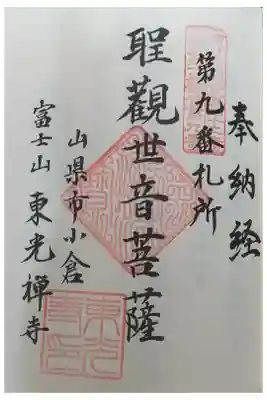 奉納経
第九番札所
聖觀世音菩薩
山県市小倉
富士山 東光禅寺